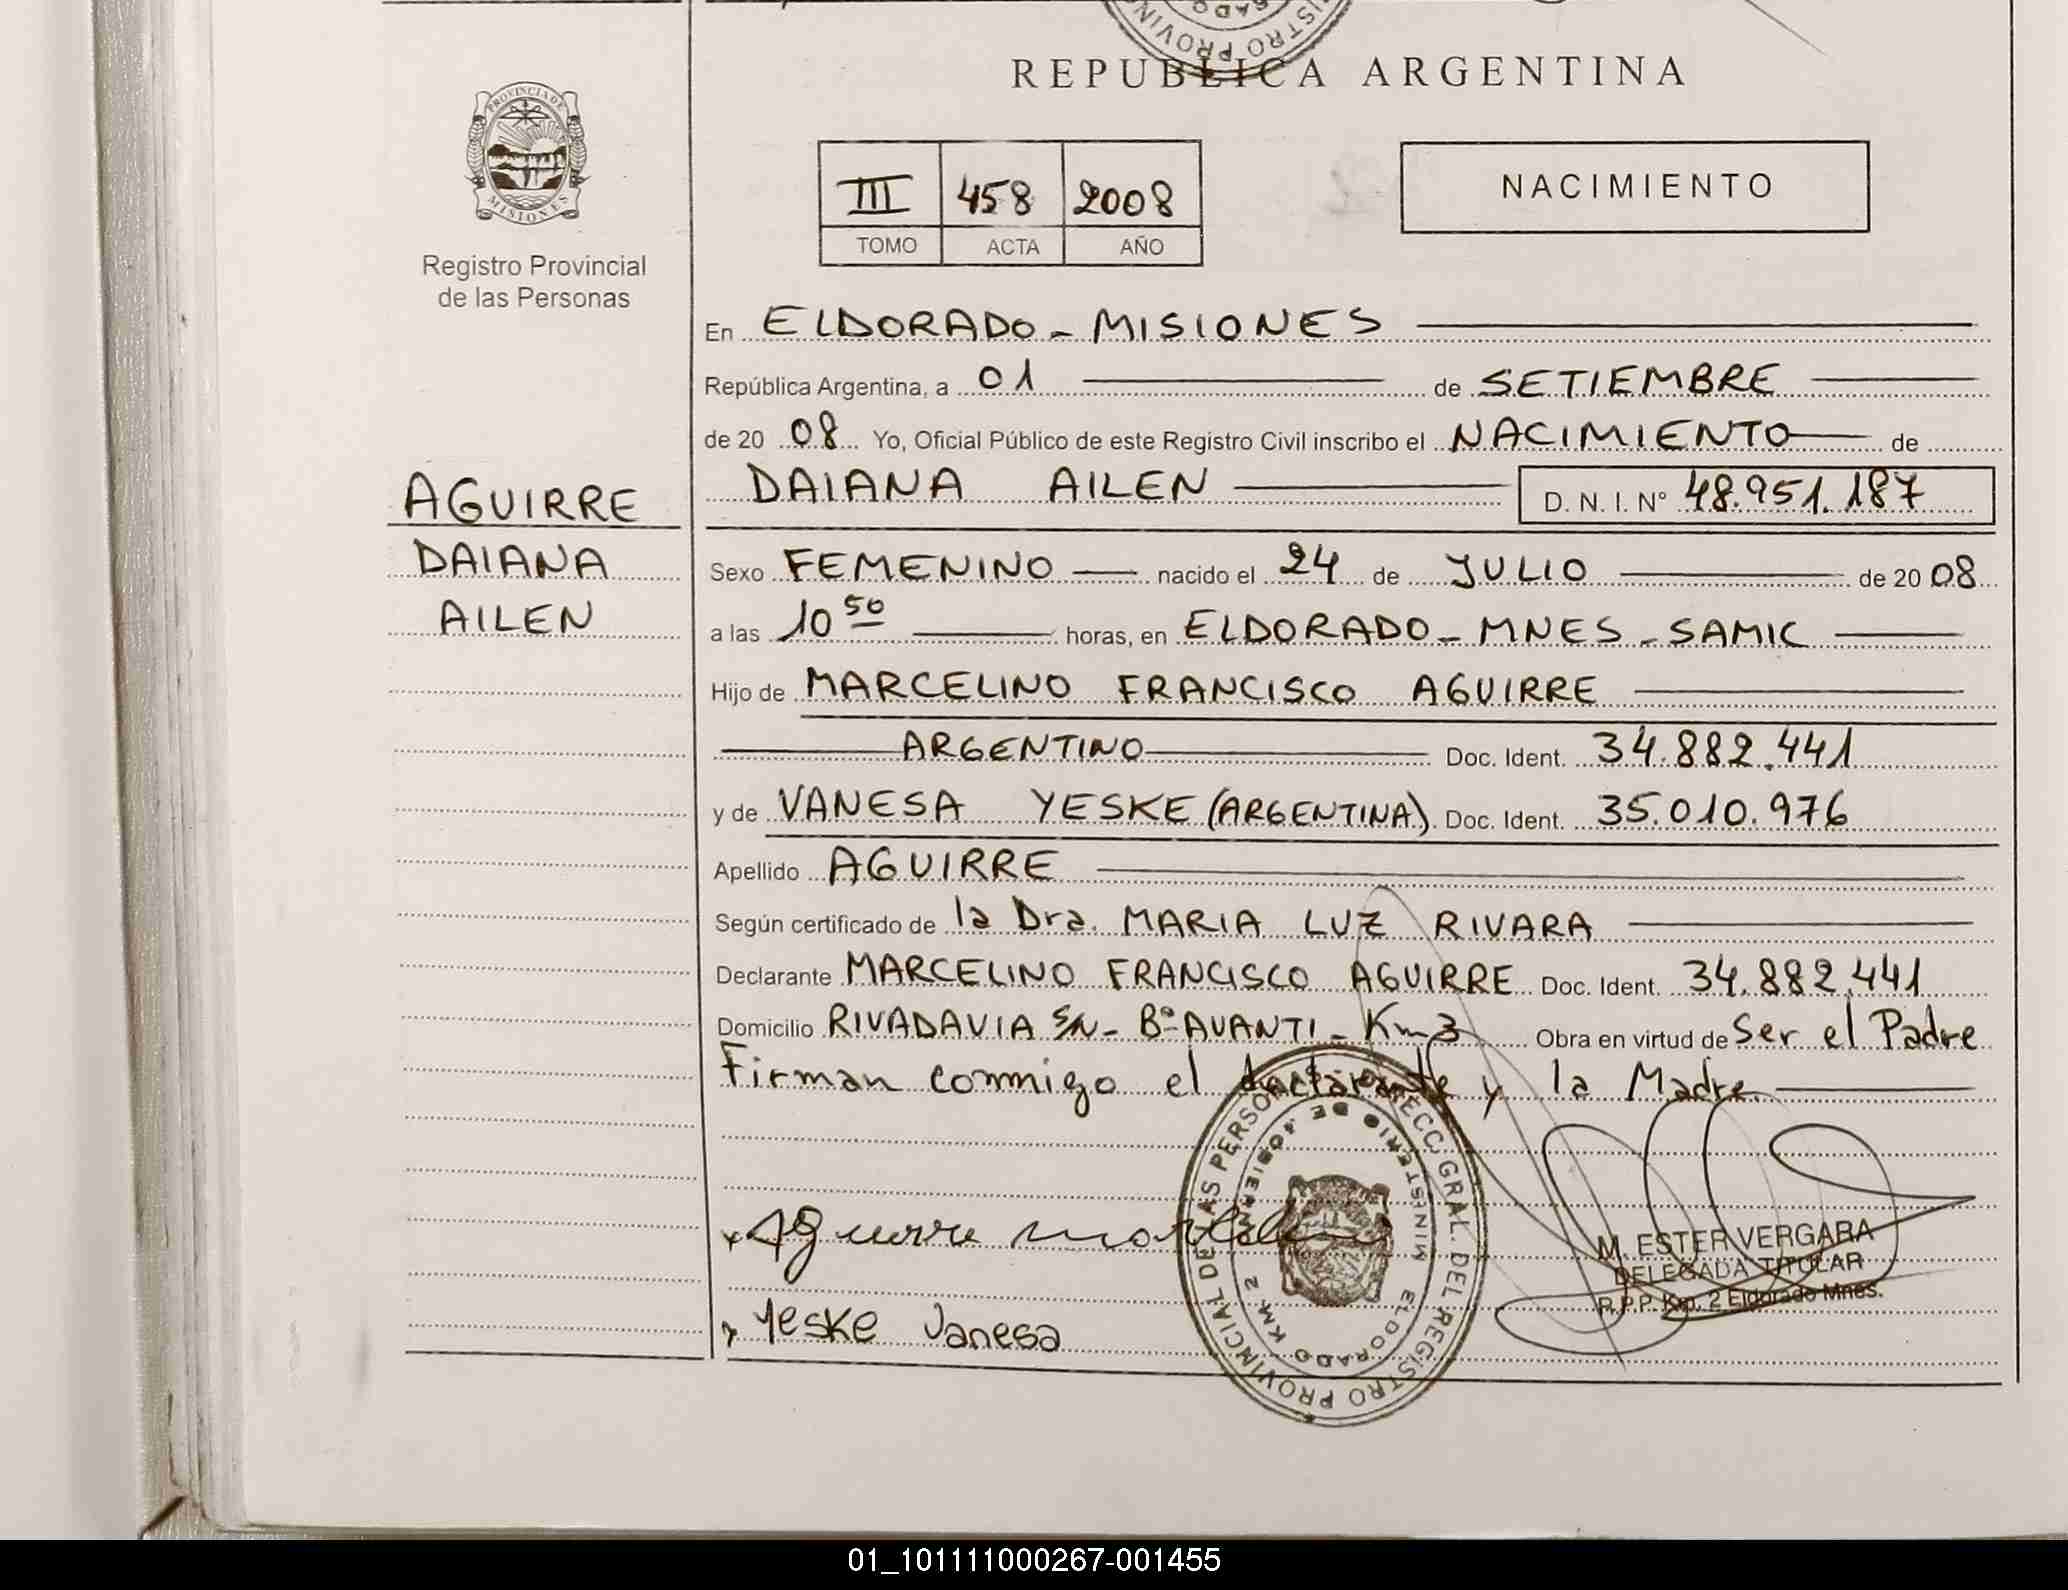 REPUBLICA ARGENTINA
PROVINCIA DE
MISIONES
Registro Provincial
de las Personas
III 458 2008
TOMO ACTA AÑO
NACIMIENTO
En ELDORADO - MISIONES
República Argentina, a 01 de SETIEMBRE
de 20 08 Yo, Oficial Público de este Registro Civil inscribo el NACIMIENTO de
AGUIRRE
DAIANA
AILEN
DAIANA AILEN D. N. I. Nº 48.951.187
Sexo FEMENINO nacido el 24 de JULIO de 20 08
a las 10 50 horas, en ELDORADO - MNES - SAMIC
Hijo de MARCELINO FRANCISCO AGUIRRE
ARGENTINO Doc. Ident. 34.882.441
y de VANESA YESKE (ARGENTINA). Doc. Ident. 35.010.976
Apellido AGUIRRE
Según certificado de la Dra. MARIA LUZ RIVARA
Declarante MARCELINO FRANCISCO AGUIRRE Doc. Ident. 34.882.441
Domicilio RIVADAVIA S/N - Bº AVANTI - Km 3 Obra en virtud de Ser el Padre
Firman conmigo el declarante y la Madre
Aguirre marcelino
Yeske Vanesa
DIRECC. GRAL. DEL REGISTRO PROVINCIAL DE LAS PERSONAS
MINISTERIO DE GOBIERNO
ELDORADO KM 2
M. ESTER VERGARA
DELEGADA TITULAR
R.P.P. Km. 2 Eldorado Mnes.
01_101111000267-001455